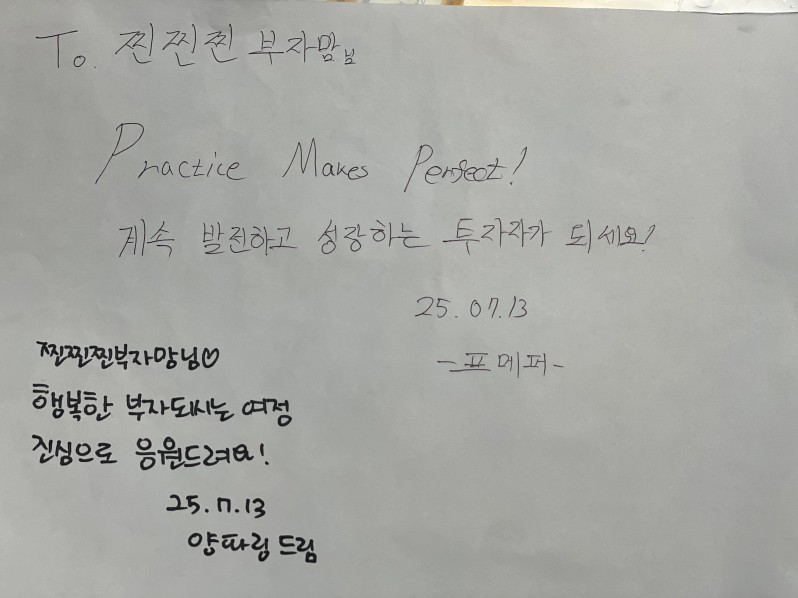 To. 찐찐찐 부자맘님
Practice Makes Perfect!
계속 발전하고 성장하는 투자자가 되세요!
25.07.13
-프메퍼-
찐찐찐부자맘님♡
행복한 부자되시는 여정
진심으로 응원드려요!
25.7.13
양파링 드림